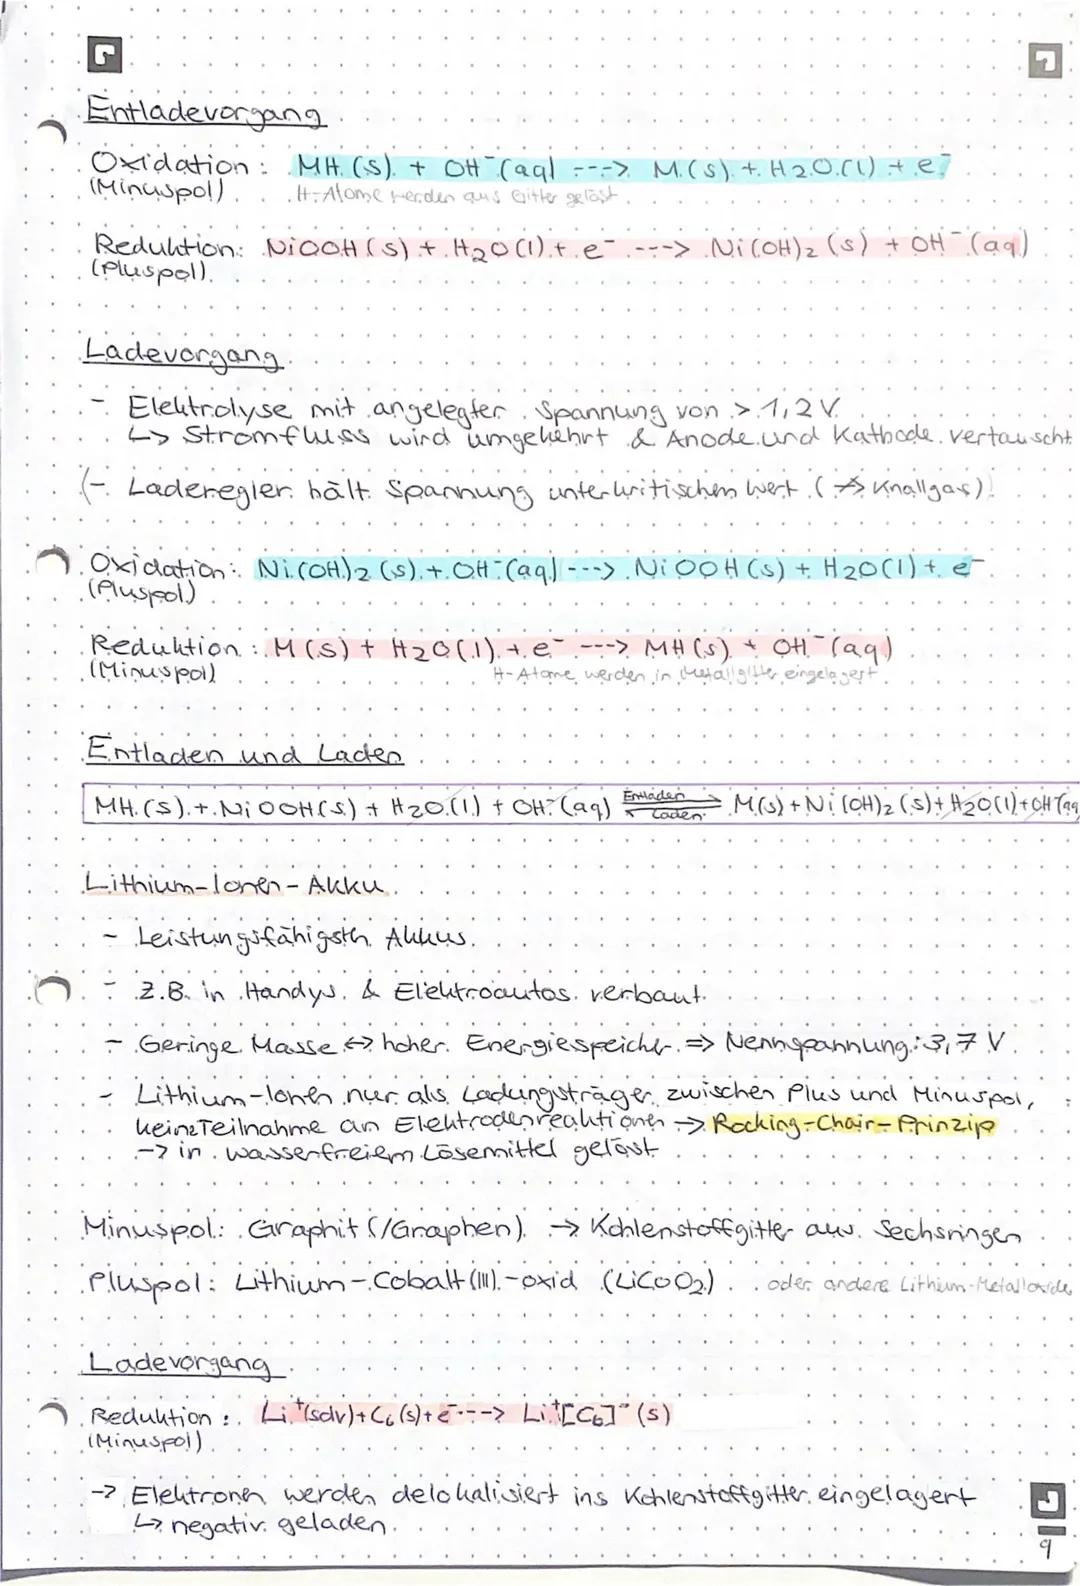 Entladevorgang
Oxidation: MH (s) + OH⁻(aq) ---> M (s) + H2O (l) + e⁻
(Minuspol) H-Atome werden aus Gitter gelöst
Reduktion: NiOOH (s) + H2O (l) + e⁻ ---> Ni(OH)2 (s) + OH⁻(aq)
(Pluspol)
Ladevorgang
- Elektrolyse mit angelegter Spannung von > 1,2 V
↳ Stromfluss wird umgekehrt & Anode und Kathode vertauscht
(- Laderegler hält Spannung unter kritischen Wert (↛ Knallgas)
Oxidation: Ni(OH)2 (s) + OH⁻(aq) ---> NiOOH (s) + H2O (l) + e⁻
(Pluspol)
Reduktion: M (s) + H2O (l) + e⁻ ---> MH (s) + OH⁻(aq)
(Minuspol) H-Atome werden in Metallgitter eingelagert
Entladen und Laden
MH (s) + NiOOH (s) + H2O (l) + OH⁻(aq) Entladen ⇌ Laden M(s) + Ni(OH)2 (s) + H2O(l) + OH⁻(aq
Lithium-Ionen-Akku
- Leistungsfähigsten Akkus
- Z.B. in Handys & Elektroautos verbaut
- Geringe Masse ↔ hoher Energiespeicher => Nennspannung: 3,7 V
- Lithium-Ionen nur als Ladungsträger zwischen Plus und Minuspol,
keine Teilnahme an Elektrodenreaktionen -> Rocking-Chair-Prinzip
-> in wasserfreiem Lösemittel gelöst
Minuspol: Graphit (/Graphen) -> Kohlenstoffgitter aus Sechsringen
Pluspol: Lithium-Cobalt(III)-oxid (LiCoO2) oder andere Lithium-Metalloxide
Ladevorgang
Reduktion: Li⁺(solv) + C6 (s) + e⁻ ---> Li⁺[C6]⁻ (s)
(Minuspol)
-> Elektronen werden delokalisiert ins Kohlenstoffgitter eingelagert
↳ negativ geladen
9